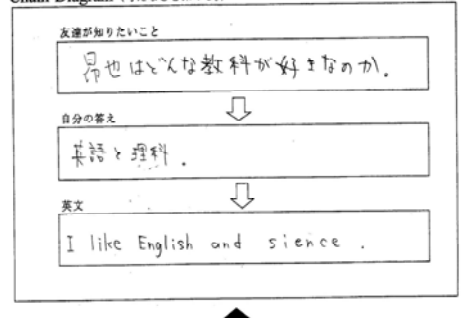 友達が知りたいこと
昂也はどんな教科が好きなのか.
自分の答え
英語と理科.
英文
I like English and sience.